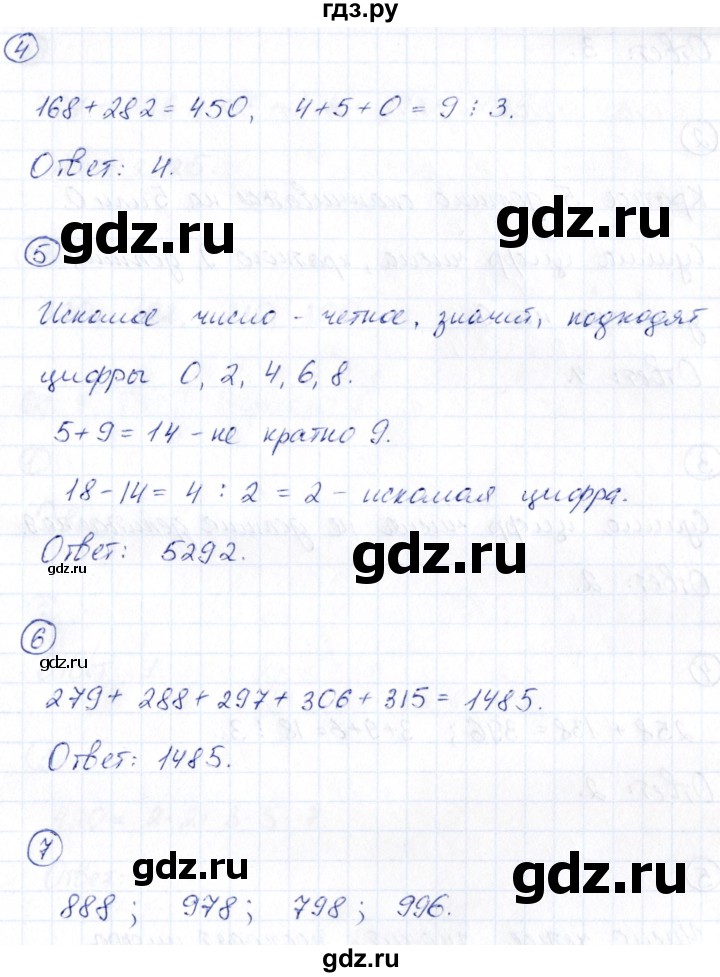 гдз.ру
4
168+282=450, 4+5+0=9⋮3.
Ответ: 4.
gdz.ru
gdz.ru
5
Искомое число - четное, значит, подходят
цифры 0, 2, 4, 6, 8.
5+9=14 - не кратно 9.
18-14=4:2=2 - искомая цифра.
Ответ: 5292.
gdz.ru
gdz.ru
6
gdz.ru
279+288+297+306+315=1485.
Ответ: 1485.
7
gdz.ru
gdz.ru
888; 978; 798; 996.
gdz.ru